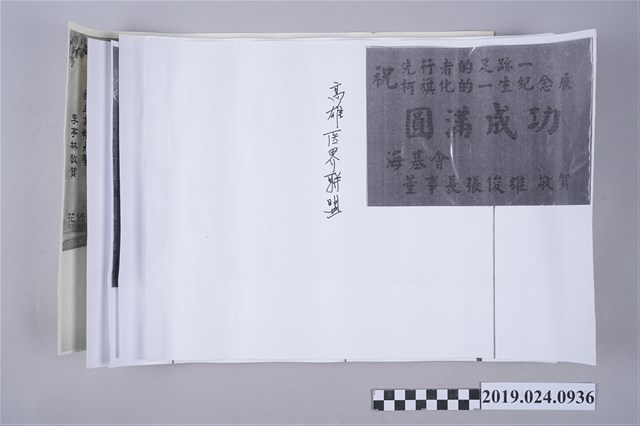 祝
先行者的足跡一
柯旗化的一生紀念展
圓滿成功
海基會
董事長張俊雄 敬賀
高雄医界聯盟
李亭林敬賀
2019.024.0936